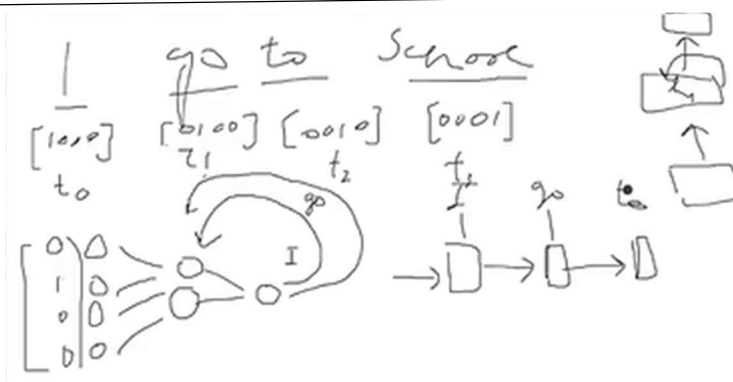 I go to School
[1000] [0100] [0010] [0001]
t0 t1 t2 t3
go
I
I go to
0
1
0
0